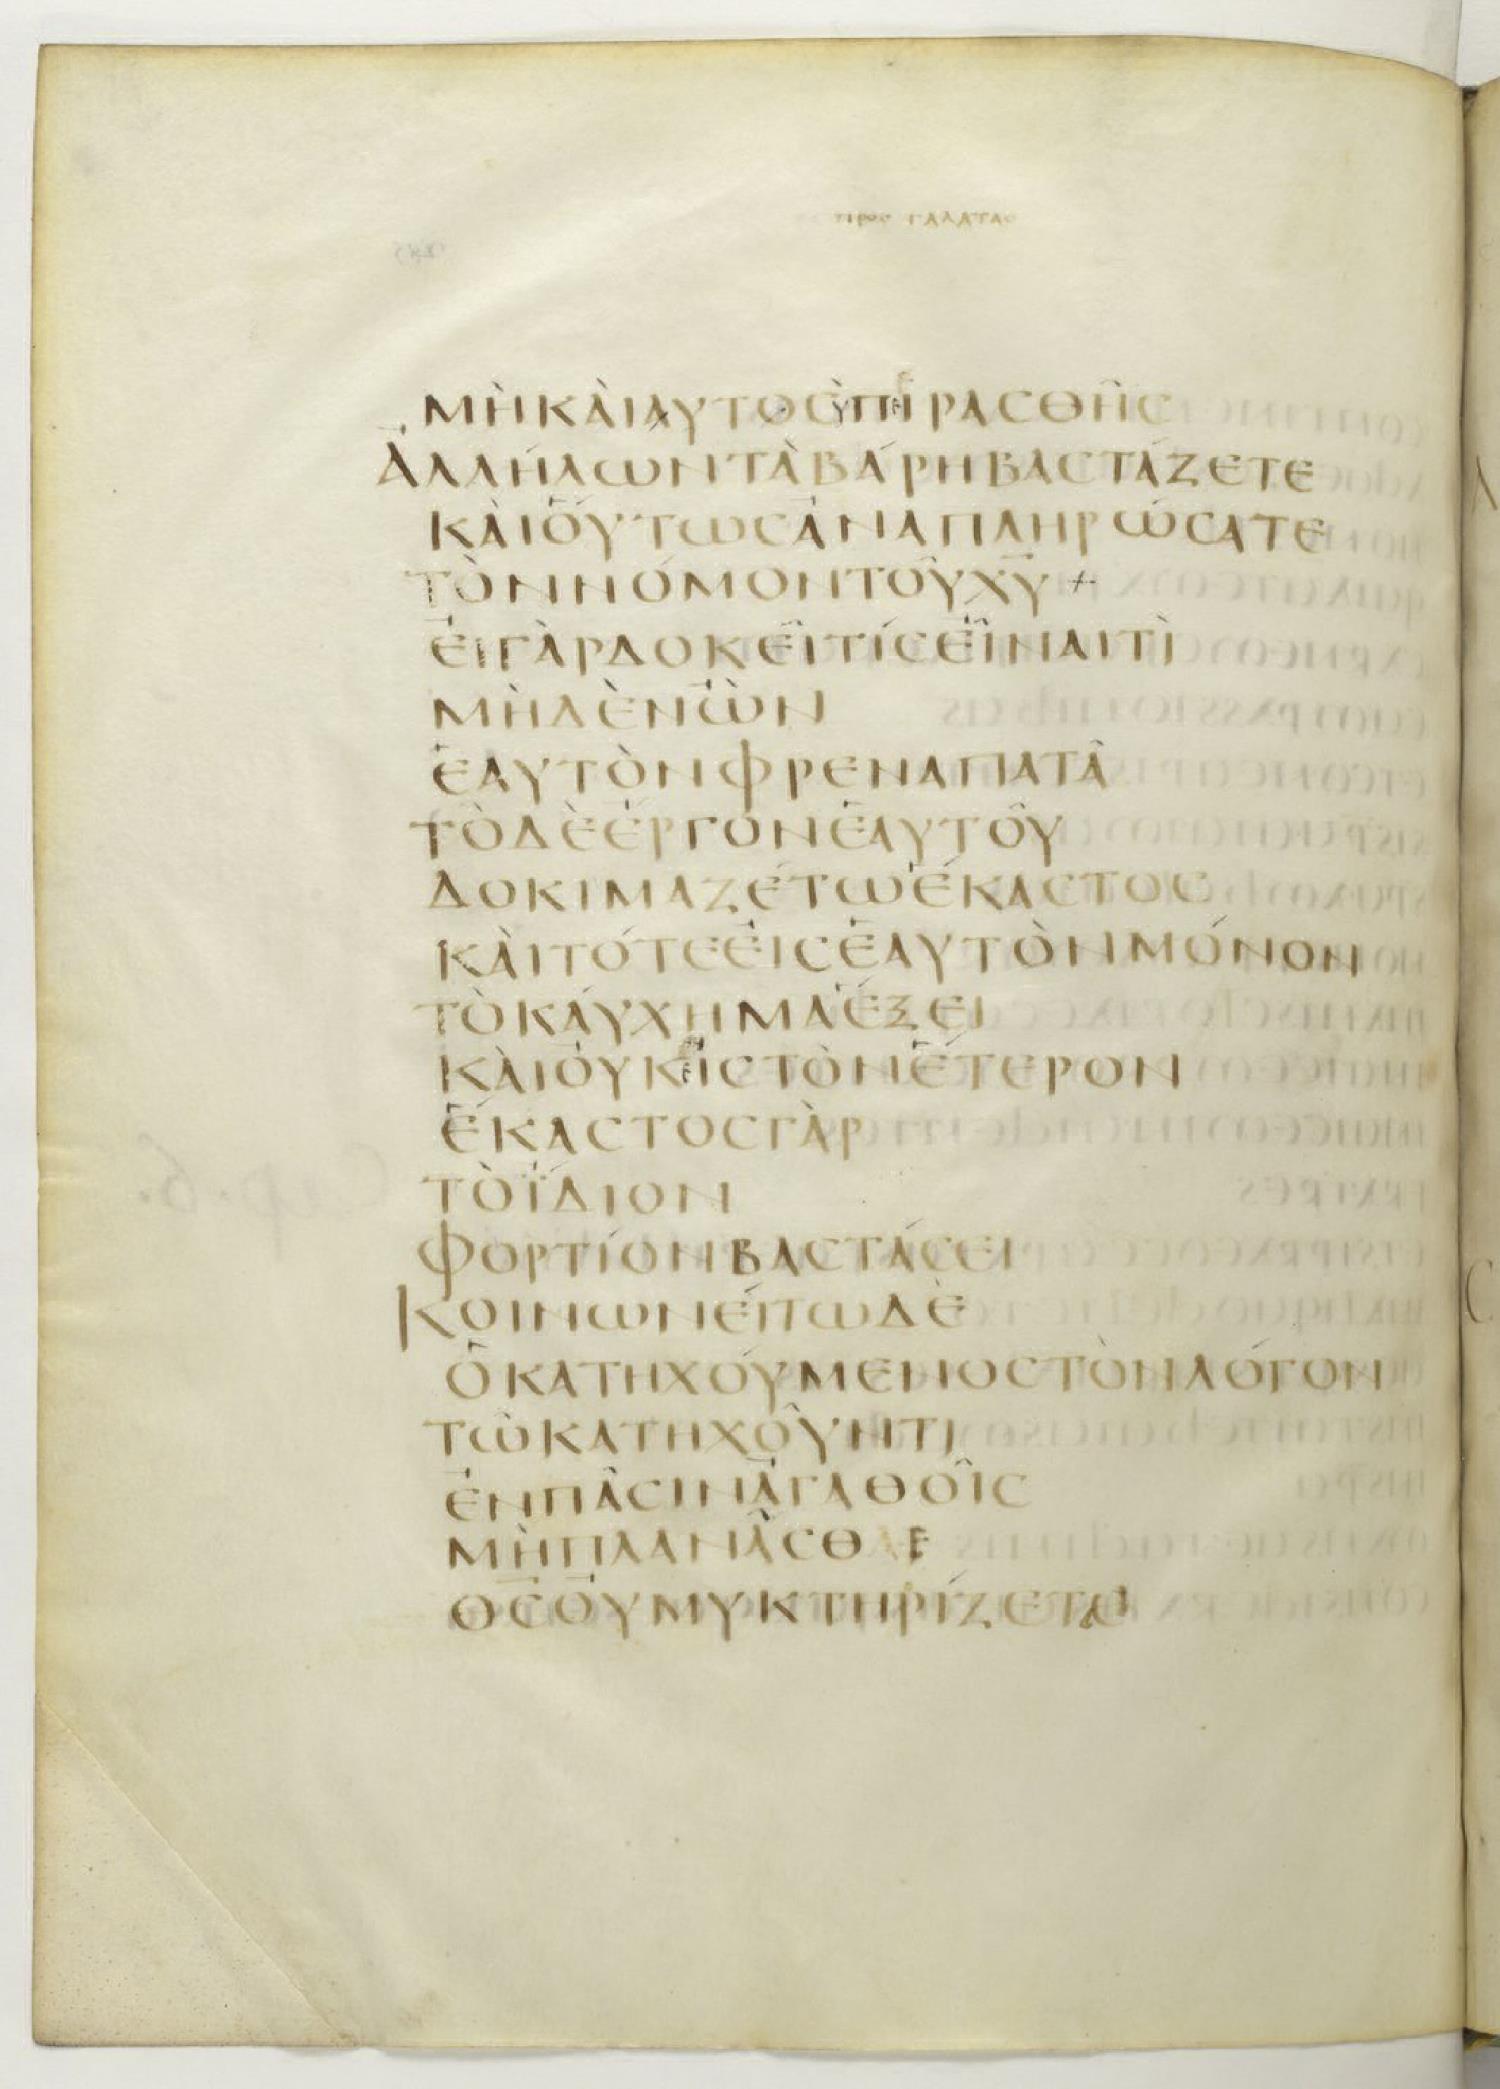 ΠΡΟΣ ΓΑΛΑΤΑΣ
ΜῊΚΑῚΑΥΤΟΣΠΙΡΑΣΘΗ͂Σ
ἈΛΛΉΛΩΝΤᾺΒΆΡΗΒΑΣΤΆΖΕΤΕ
ΚΑῚΟὝΤΩΣἈΝΑΠΛΗΡΏΣΑΤΕ
ΤῸΝΝΌΜΟΝΤΟΥ͂ΧΥ̅
ΕἸΓᾺΡΔΟΚΕΙ͂ΤΊΣΕἾΝΑΙΤῚ
ΜΗΔῈΝὪΝ
ἙΑΥΤῸΝΦΡΕΝΑΠΑΤΑ͂
ΤῸΔῈἜΡΓΟΝἙΑΥΤΟΥ͂
ΔΟΚΙΜΑΖΈΤΩἝΚΑΣΤΟΣ
ΚΑῚΤΌΤΕΕἸΣἙΑΥΤῸΝΜΌΝΟΝ
ΤῸΚΆΥΧΗΜΑἝΞΕΙ
ΚΑῚΟΥ̓ΚΙΣΤῸΝἝΤΕΡΟΝ
ἝΚΑΣΤΟΣΓᾺΡ
ΤῸΪ́ΔΙΟΝ
ΦΟΡΤΊΟΝΒΑΣΤΆΣΕΙ
ΚΟΙΝΩΝΕΊΤΩΔῈ
ὉΚΑΤΗΧΟΎΜΕΝΟΣΤῸΝΛΌΓΟΝ
ΤΩ͂ΚΑΤΗΧΟΥ͂ΝΤΙ
ἘΝΠΑ͂ΣΙΝἈΓΑΘΟΙ͂Σ
ΜῊΠΛΑΝΑ͂ΣΘΕ
ΘΣ̅ΟΥ̓ΜΥΚΤΗΡΊΖΕΤΕ